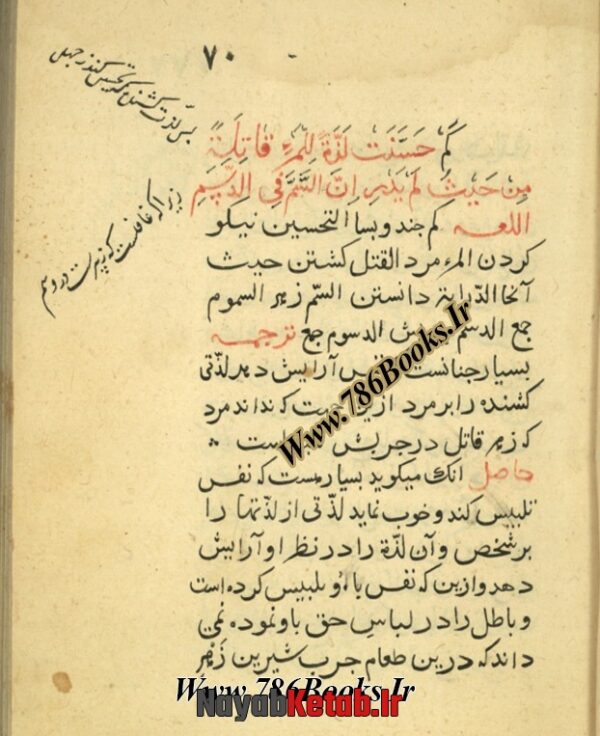 ۷۰
كَمْ حَسَّنَتْ لَذَّةً لِلْمَرْءِ قَاتِلَةً
مِنْ حَيْثُ لَمْ يَدْرِ اِنَّ السَّمَّ فِي الدَّسَمِ
اللغه كم چند و بسا التحسين نيكو
كردن المرء مرد القتل كشتن حيث
آنجا الدّراية دانستن السّم زهر السموم
جمع الدسم الدسوم جمع ترجمه
بسيار چنانست نفس آرايش دهد لذّتى
كشنده را بر مرد ازين جهت كه نداند مرد
كه زهر قاتل در چربش است
حاصل انك ميكويد بسيار هست كه نفس
تلبيس كند و خوب نمايد لذّتى از لذّتها را
بر شخص و آن لذّة را در نظر او آرايش
دهد و ازين كه نفس باو تلبيس كرده است
و باطل را در لباس حق باو نموده نمى
داند كه درين طعام چرب شيرين زهر
بس لذت كشنده كه تحسين كند ز جهل
زيرا كه غافلست كه زهرست در دسم
Www.786Books.Ir
Www.786Books.Ir
NayabKetab.Ir